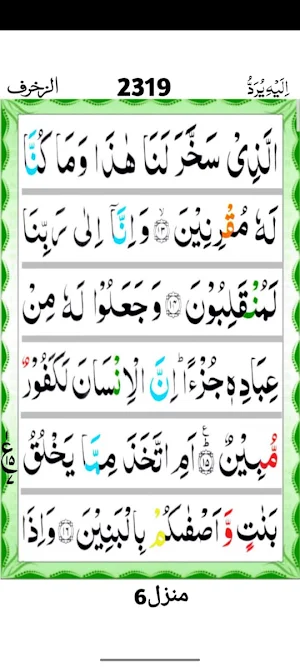 الزخرف 2319 اِلَيۡهِ يُرَدُّ
الَّذِىۡ سَخَّرَ لَنَا هٰذَا وَمَا كُنَّا
لَهٗ مُقۡرِنِيۡنَ ۙ‏﴿۱۳﴾ وَاِنَّاۤ اِلٰى رَبِّنَا
لَمُنۡقَلِبُوۡنَ ‏﴿۱۴﴾ وَجَعَلُوۡا لَهٗ مِنۡ
عِبَادِهٖ جُزۡءًا ؕ اِنَّ الۡاِنۡسَانَ لَـكَفُوۡرٌ
مُّبِيۡنٌ ؕ‏﴿۱۵﴾ اَمِ اتَّخَذَ مِمَّا يَخۡلُقُ
بَنٰتٍ وَّاَصۡفٰٮكُمۡ بِالۡبَنِيۡنَ ‏﴿۱۶﴾ وَاِذَا
منزل6